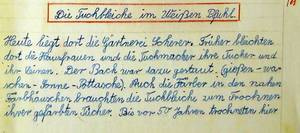 Die Tuchbleiche im Weißen Pfuhl.
Heute liegt dort die Gärtnerei Scherer. Früher bleichten
dort die Hausfrauen und die Tuchmacher ihre Tücher und
ihr Leinen. Der Bach war dazu gestaut. (Gießen-wa-
schen-Sonne-Pottasche). Auch die Färber in den nahen
Farbhäuschen brauchten die Tuchbleiche zum Trocknen
ihrer gefärbten Tücher. Bis vor 50 Jahren trockneten hier